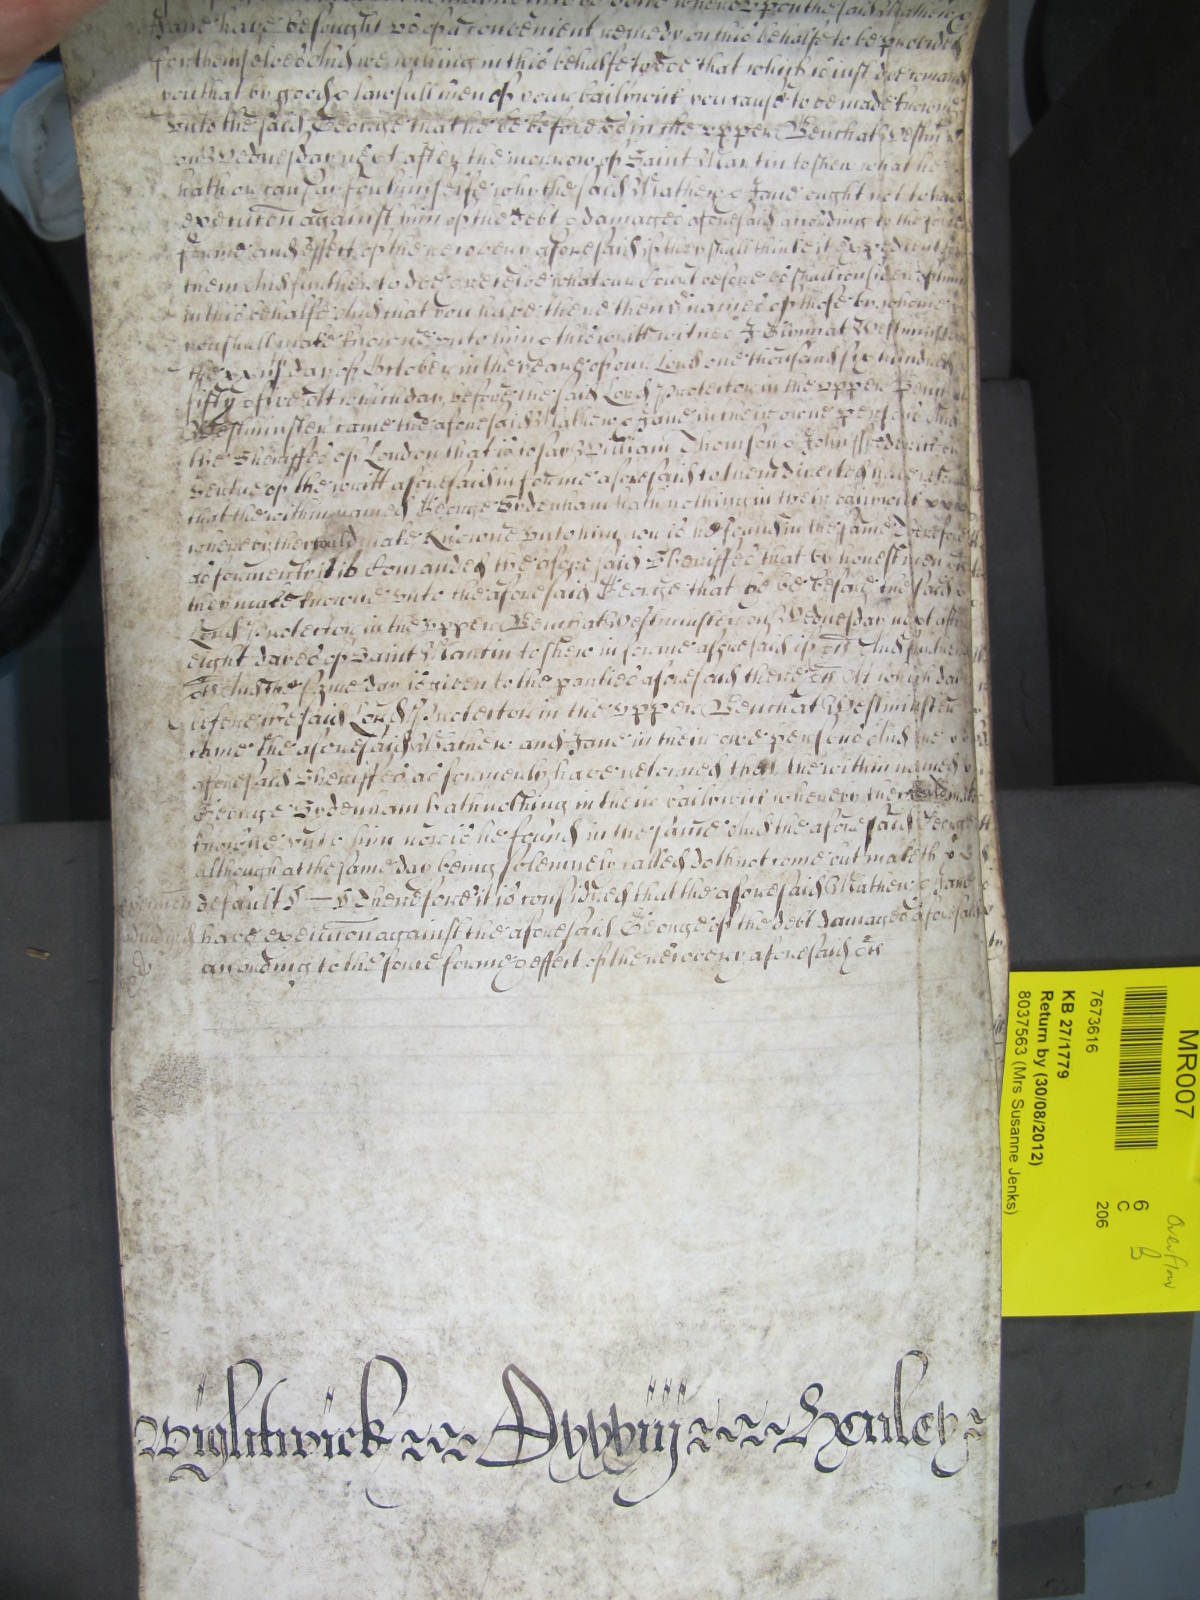 whereupon the said Mathew &
Jane have besought us of a convenient remedy on this behalfe to be provided
for themselves And we willing in this behalfe to doe that which is just doe comand
you that by good & lawfull men of your bailywick you cause to be made knowne
unto the said George that he be before us in the upper Bench at Westm
on Wednesday next after the morrow of Saint Martin to shew what he
hath or can say for himselfe why the said Mathew & Jane ought not to have
execucon against him of the debt & damages aforesaid according to the force
forme and effect of the recovery aforesaid if they shall thinke it expedient for
them And further to doe & receive what our Court before us shall consider of him
in this behalfe And that you have there then the names of those by whome
you shall make knowne unto him & this writt witnes J Glynn at Westminster
the day of October in the yeare of our Lord one thousand six hundred
fifty & five Att which day before the said Lord Protector in the upper Bench
Westminster came the aforesaid Mathew & Jane in their owne persons And
the Sheriffes of London that is to say William Thomson & John Frederick
vertue of the writt aforesaid in forme aforesaid to them directed have retorned
that the within named George Sydenham hath nothing in their bailywick
whereby they could make knowne unto him nor is he found in the same Therefore
as formerly it is Comanded the aforesaid Sheriffes that by honest men &c
they make knowne unto the aforesaid George that he be before the said
Lord Protector in the upper Bench at Westminster on Wednesday next after
eight dayes of Saint Martin to shew in forme aforesaid if &c And further
&c And the same day is given to the parties aforesaid there &c At which day
before the said Lord Protector in the upper Bench at Westminster
came the aforesaid Mathew and Jane in their owne persons And the
aforesaid Sheriffes as formerly have retorned that the within named
George Sydenham hath nothing in their bailywick whereby they could make
knowne unto him nor is he found in the same And the aforesaid George
although at the same day being solemnely called doth not come but maketh
default Therefore it is considered that the aforesaid Mathew & Jane
have execucon against the aforesaid George of the debt & damages aforesaid
according to the force forme & effect of the recovery aforesaid &c
Wightwick Henley
MR007
7673616
KB 27/1779
Return by (30/08/2012)
8037563 (Mrs Susanne Jenks)
6
C
206
Overflow
B